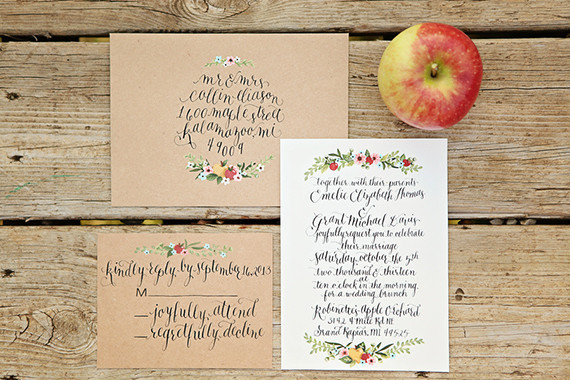 mr & mrs
collin eliason
1600 maple street
kalamazoo, mi
49009
together with their parents
Emelie Elizabeth Thomas
&
Grant Michael Davis
joyfully request you to celebrate
their marriage
saturday, october the 5th
two thousand & thirteen
at
ten o'clock in the morning
for a wedding brunch
Robinette's Apple Orchard
3142 4 Mile Rd NE
Grand Rapids, MI 49525
kindly reply by september 16, 2013
M
joyfully attend
regretfully decline